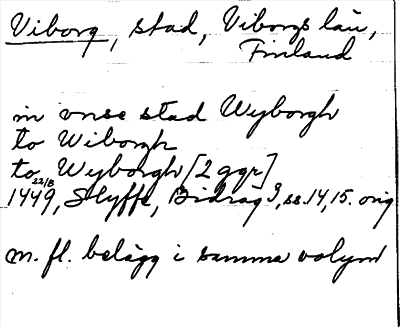 Viborg, stad, Viborgs län,
Finland
in vnse stad Wyborgh
to Wiborgh
to Wyborgh [2 ggr]
1449 22/8, Styffe, Bidrag 3, ss. 14, 15. orig
m. fl. belägg i samma volym